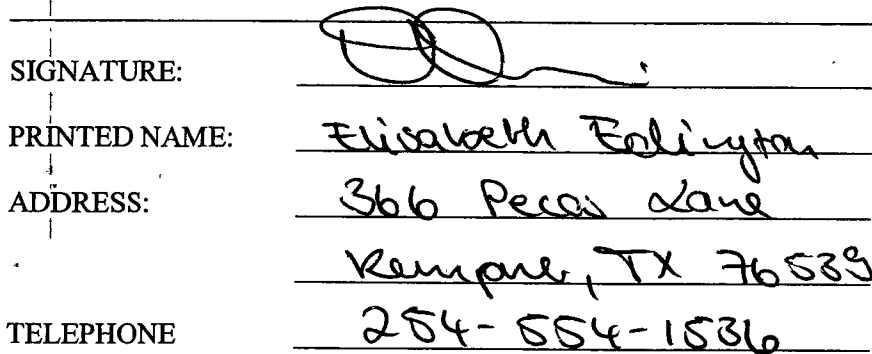 SIGNATURE:
PRINTED NAME: Elisabeth Edlington
ADDRESS: 366 Pecos Lane
Kempner, TX 76539
TELEPHONE 254-554-1536